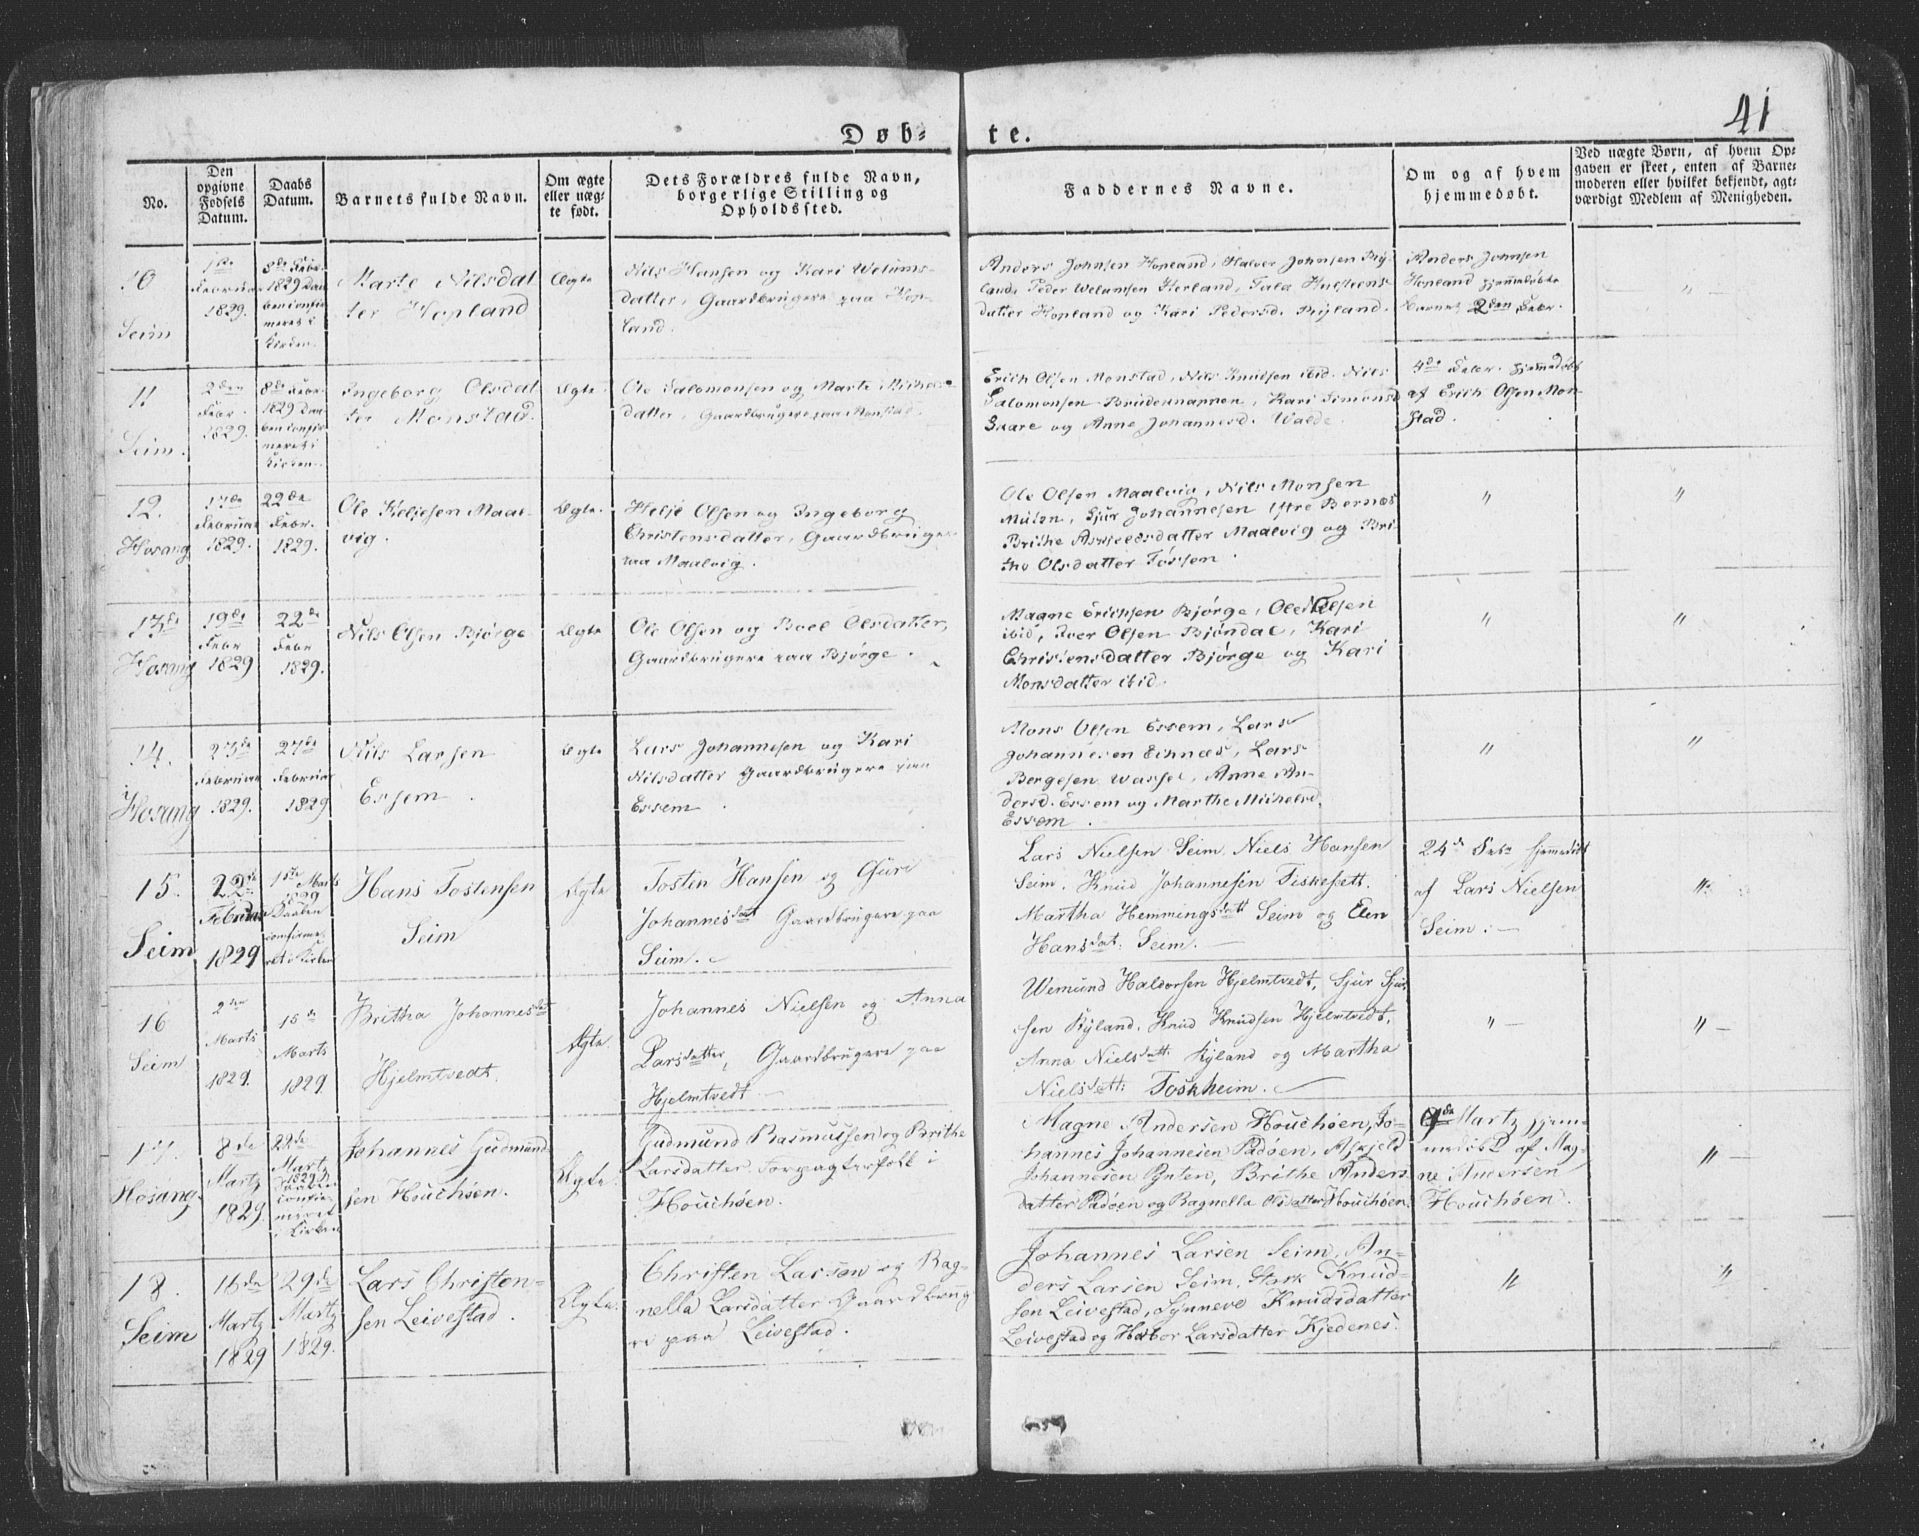 41
Døb-te.
No.
Den opgivne Fødsels Datum.
Daabs Datum.
Barnets fulde Navn.
Om ægte eller uæg-te født.
Dets Forældres fulde Navn, borgerlige Stilling og Opholdssted.
Faddernes Navne.
Om og af hvem hjemmedøbt.
Ved uægte Børn, af hvem Op-
gaven er skeet, enten af Barne-
moderen eller hvilket bekjendt, agt-
værdigt Medlem af Menigheden.
10
Seim
1ste
Februar
1829.
8de Febr.
1829 Daa
ben confir
meret i
Kirken.
Marte Nilsdat
ter Hopland
Ægte
Nils Hansen og Kari Welums-
datter, Gaardbrugere paa Hop-
land.
Anders Johnsen Hopland, Halvor Johnsen Ry
land, Peder Welumsen Herland,
datter Hopland og Kari Pedersd. Ryland.
Anders Johnsen
Hopland hjemmedøbte
Barnet 2den Febr.
"
11
Seim.
2den
Febr.
1829.
8de Febr
1829 Daa
ben confir
meret i
Kirken.
Ingeborg Olsdat
ter Monstad.
Ægte.
Ole Salomonsen og Marte Michels
datter, Gaardbrugere paa Monstad.
Erich Olsen Monstad, Nils Knudsen ibid. Nils
Salomonsen, Kari Simonsd
og Anne Johannesd. Walde.
Febr. hjemmedøbt
af Erich Olsen Mon
stad.
12.
Hosang
17de
Februar
1829.
22de
Febr.
1829.
Ole Heljesen Maal
vig.
Ægte.
Helje Olsen og Ingeborg
Christensdatter, Gaardbruger
paa Maalvig.
Ole Olsen Maalvig, Nils Monsen
Mulen, Sjur Johannesen Ystre Bernæs
Brithe Askjelsdatter Maalvig og Bri
the Olsdatter Fossen.
"
"
13de
Hosang
19de
Febr
1829
22de
Febr
1829.
Nils Olsen Bjørge
Ægte
Ole Olsen og Boel Olsdatter,
Gaardbrugere paa Bjørge.
Magne Erichsen Bjørge, Ole Olsen
ibid, Iver Olsen Bjøndal, Kari
Christensdatter Bjørge og Kari
Monsdatter ibid.
"
"
14.
Hosang
23de
Februar
1829.
27de
Februar
1829
Nils Larsen
Essem.
Ægte
Lars Johannesen og Kari
Nilsdatter Gaardbrugere paa
Essem
Mons Olsen Essem, Lars
Johannesen Eihnæs, Lars
Bergesen, Anne An-
dersd. Essem og Marthe Michelsd.
Essem.
"
"
15.
Seim
22de
Februar
1829
1ste Marts
1829
Daaben
confirme
ret i Kirken
Hans Tostensen
Seim
Ægte
Tosten Hansen og Guri
Johannesdat Gaardbrugere paa
Seim.
Lars Nielsen Seim, Niels Hansen
Seim. Knud Johannesen Fiskesætt.
Martha Hemmingsdatt Seim og Elen
Hansdat: Seim.
24de Febr hjemmedøbt
af Lars Nielsen
Seim.
"
16
Seim
2den
Marts
1829.
15de
Marts
1829
Britha Johannesdat
Hjelmtvedt.
Ægte
Johannes Nielsen og Anna
Larsdatter, Gaardbrugere paa
Hjelmtvedt
Wemund Haldorsen Hjelmtvedt, Sjur Sjur
sen Ryland, Knud Knudsen Hjelmtvedt,
Anna Nielsdatt: Ryland og Martha
Nielsdatt: Toskheim.
"
"
17.
Hosang.
8de
Martz
1829.
22de
Martz
1829 D
aaben
confir
meret
i Kirken
Johannes Gudmund
sen Houchøen.
Ægte.
Gudmund Rasmussen og Brithe
Larsdatter. Forpagterfolk i
Houchøen.
Magne Andersen Houchøen, Jo-
hannes Johannesen Padøen, Askjeld
Johannesen Ynten, Brithe Anders
datter Padøen og Ragnella Olsdatter Houchøen.
9de Martz hjem
medøbt af Mag
ne Andersen
Houchøen.
"
18.
Seim
16de
Martz
1829
29de
Martz
1829.
Lars Christen-
sen Leivestad.
Ægte.
Christen Larsen og Rag-
nella Larsdatter Gaardbrug
re paa Leivestad.
Johannes Larsen Seim, An-
ders Larsen Seim, Knud-
sen Leivestad, Synneve Knudsdatter
Leivestad og Larsdatter Kjedenes.
"
"